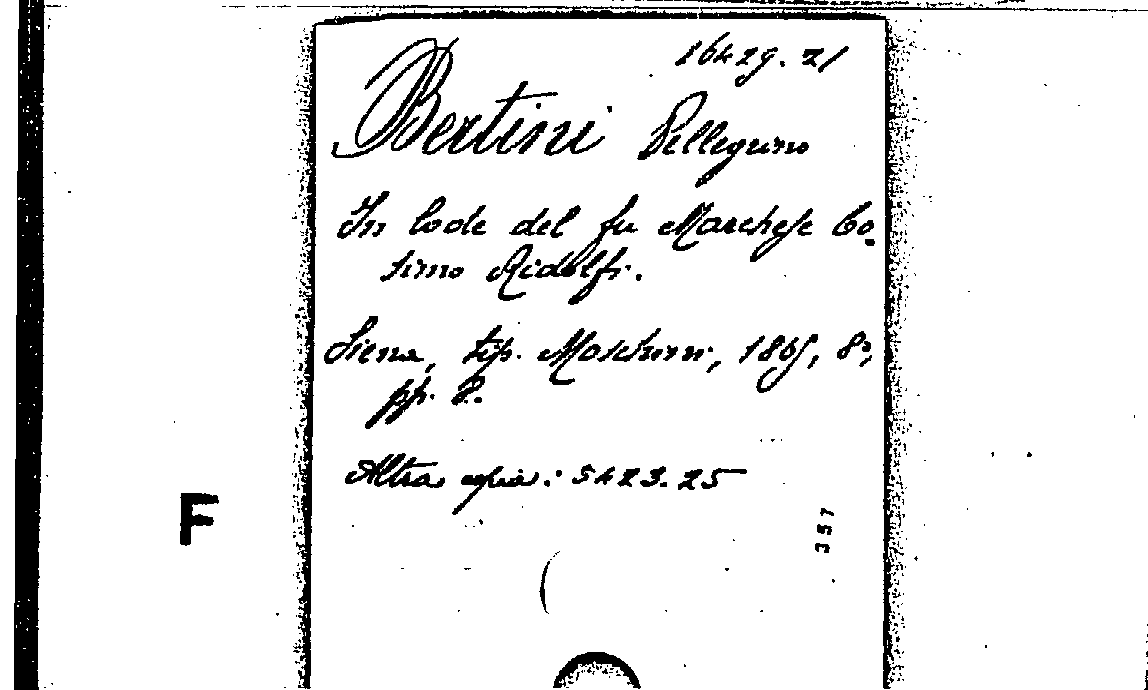 16429. 21
Bertini Pellegrino
In lode del fu Marchese Co-
simo Ridolfi.
Siena, tip. Moschini, 1865, 8°,
pp. 8.
Altra copia: 5423. 25
F
357